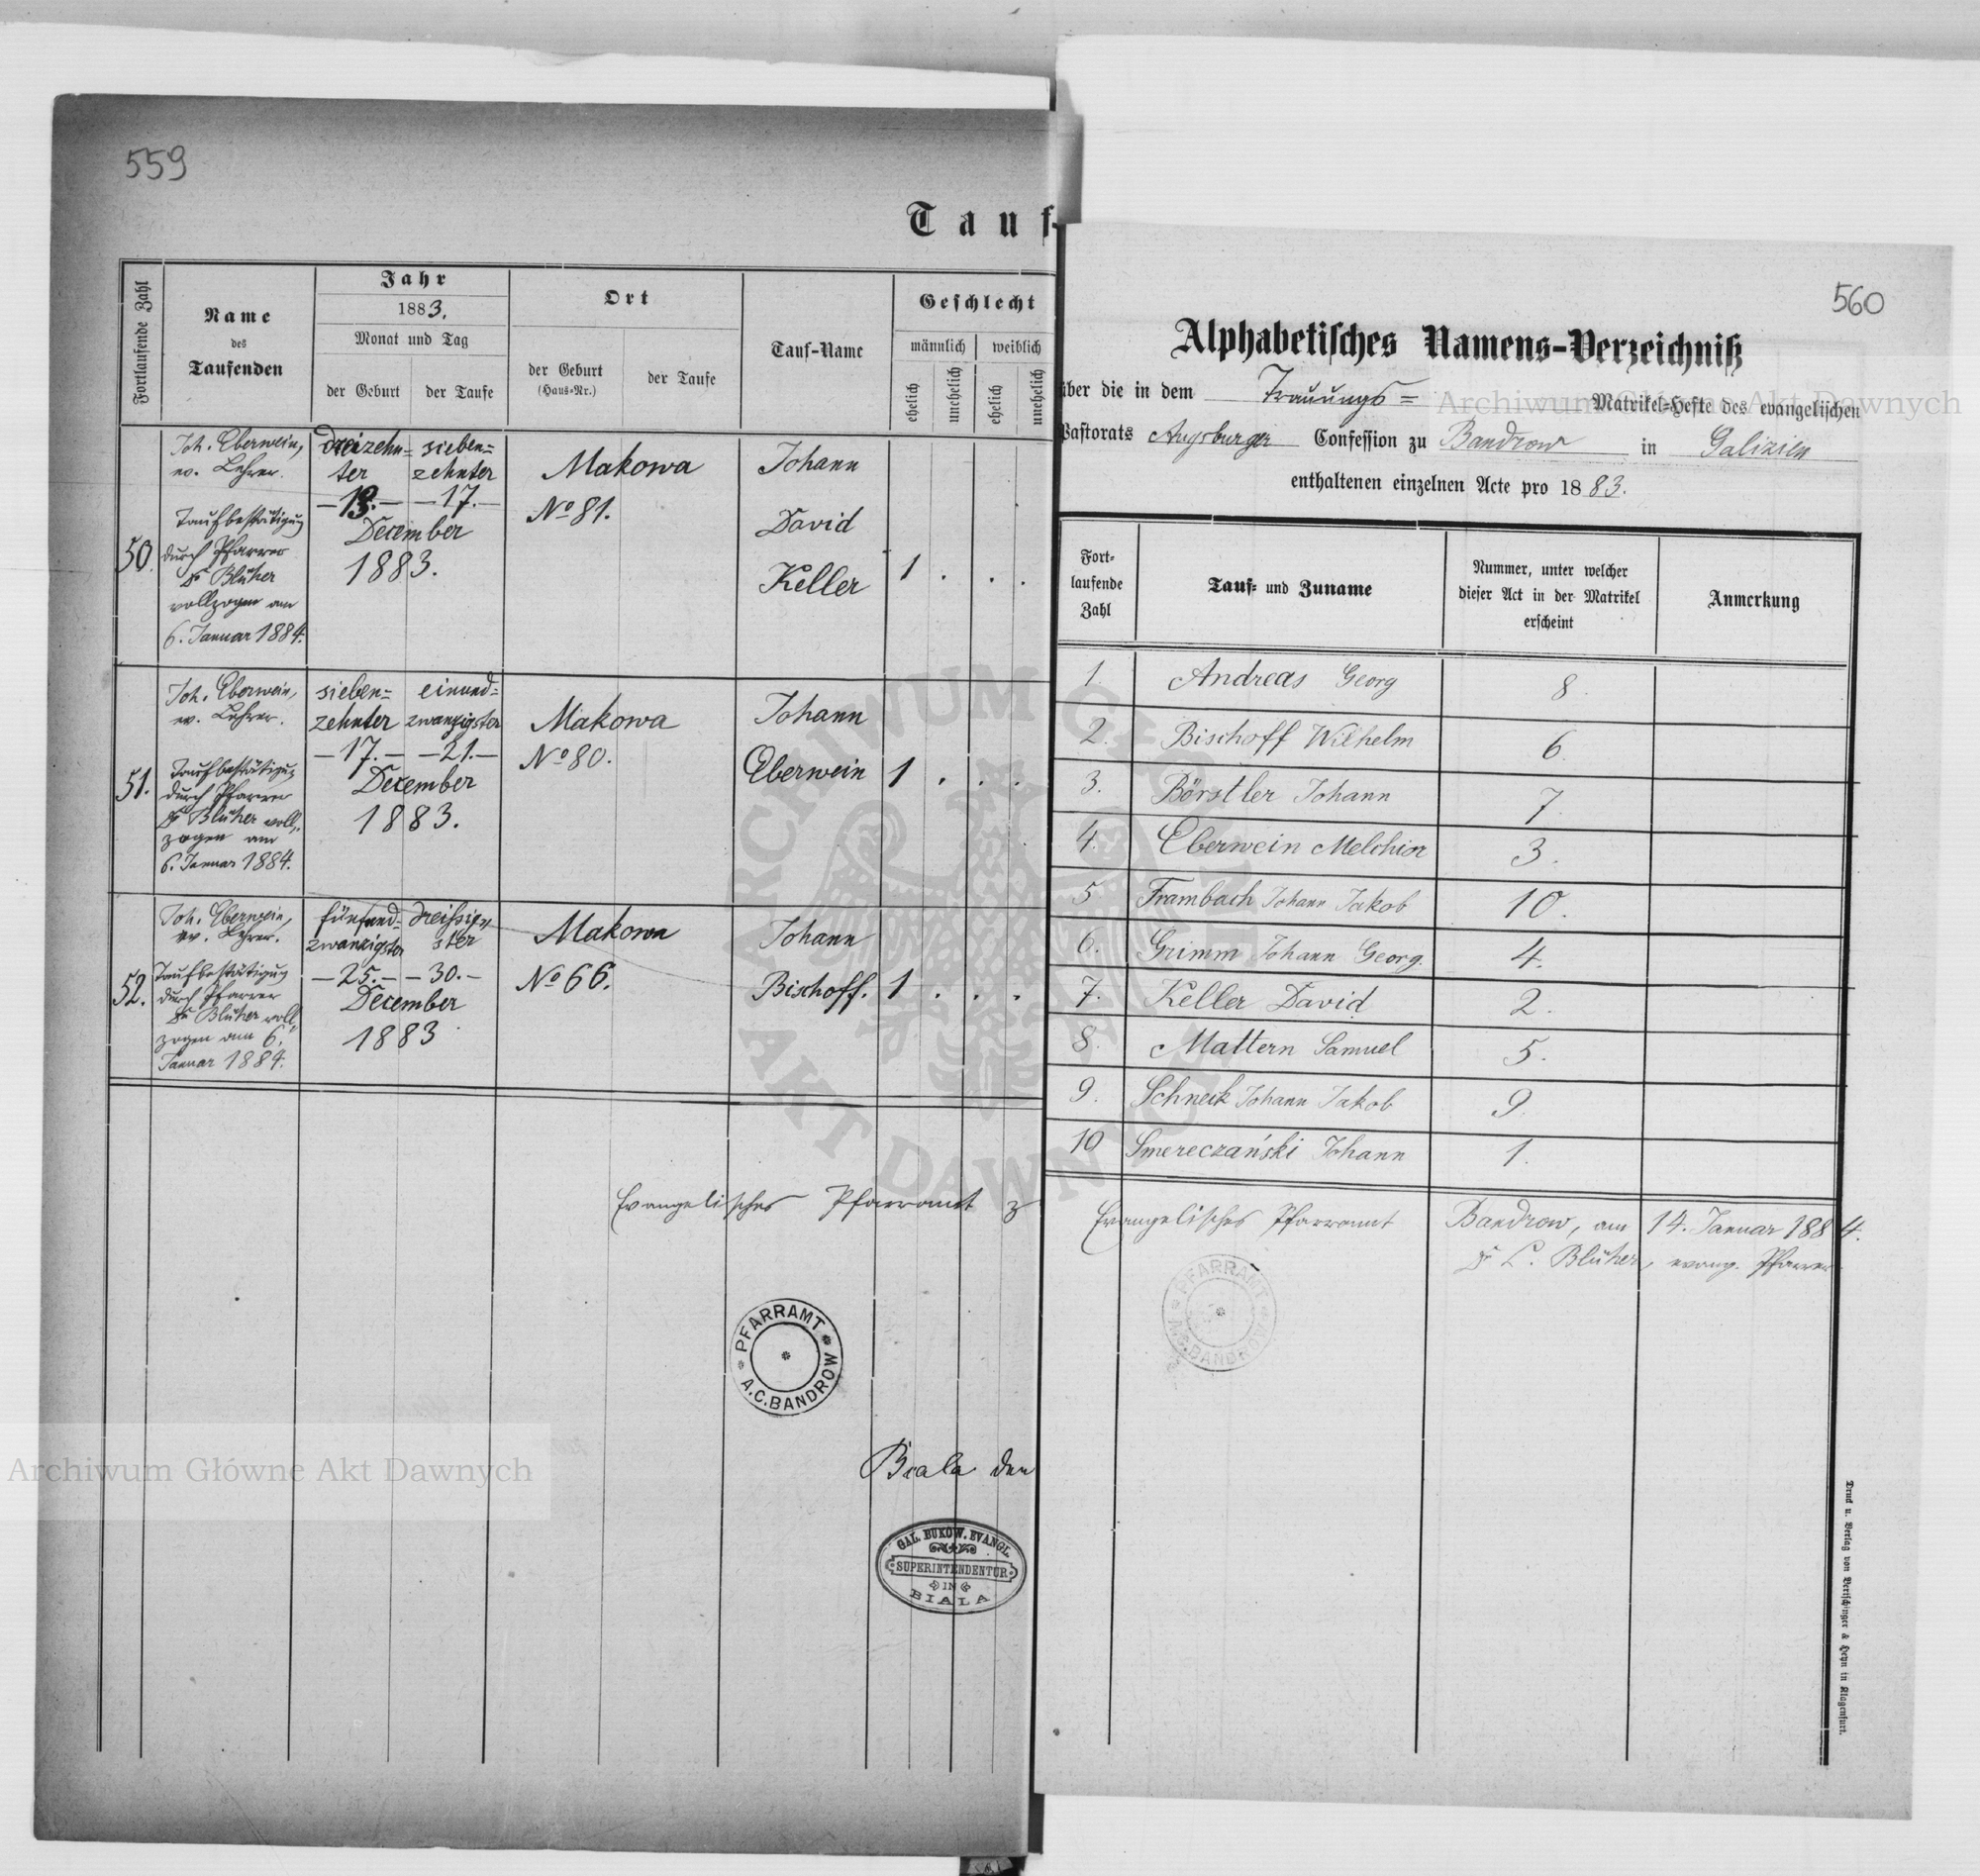 559
Tauf-
Fortlaufende Zahl
Name
des
Taufenden
Jahr
1883.
Monat und Tag
der Geburt
der Taufe
Ort
der Geburt
(Haus-Nr.)
der Taufe
Tauf-Name
Geschlecht
männlich
weiblich
ehelich
unehelich
ehelich
unehelich
50.
Joh. Eberwein,
ev. Lehrer.
Taufbestätigung
durch Pfarrer
Dr Blüher
vollzogen am
6. Januar 1884.
dreizehn=
ter
-13.-
sieben=
zehnter
-17.-
December
1883.
Makowa
No 81.
Johann
David
Keller
1 . . .
51.
Joh. Eberwein,
ev. Lehrer.
Taufbestätigung
durch Pfarrer
Dr Blüher voll,,
zogen am
6. Januar 1884.
sieben=
zehnter
-17.-
einund=
zwanzigster
-21.-
December
1883.
Makowa
No 80.
Johann
Eberwein
1 . . .
52.
Joh. Eberwein,
ev. Lehrer.
Taufbestätigung
durch Pfarrer
Dr Blüher voll,,
zogen am 6.
Januar 1884.
fünfund=
zwanzigster
-25.-
dreißig,,
ster
-30.-
December
1883
Makowa
No 66.
Johann
Bischoff.
1 . . .
Evangelisches Pfarramt z
PFARRAMT
A.C. BANDROW
Biala den
GAL. BUKOW. EVANGL.
SUPERINTENDENTUR
IN
BIALA
560
Alphabetisches Namens-Verzeichniß
über die in dem Trauungs= Matrikel-Hefte des evangelischen
Pastorats Augsburger Confession zu Bandrow in Galizien
enthaltenen einzelnen Acte pro 1883.
Fort-
laufende
Zahl
Tauf- und Zuname
Nummer, unter welcher
dieser Act in der Matrikel
erscheint
Anmerkung
1. Andreas Georg 8.
2. Bischoff Wilhelm 6.
3. Börstler Johann 7.
4. Eberwein Melchior 3.
5 Frambach Johann Jakob 10.
6. Grimm Johann Georg. 4.
7. Keller David 2.
8. Mattern Samuel 5.
9. Schneck Johann Jakob 9.
10 Smereczański Johann 1.
Evangelisches Pfarramt Bandrow, am 14. Januar 1884.
Dr L. Blüher, evang. Pfarrer
PFARRAMT
A.C. BANDROW
Druck u. Verlag von Bertschinger & Heyn in Klagenfurt.
Archiwum Główne Akt Dawnych
Archiwum Główne Akt Dawnych
ARCHIWUM GŁÓWNE
AKT DAWNYCH